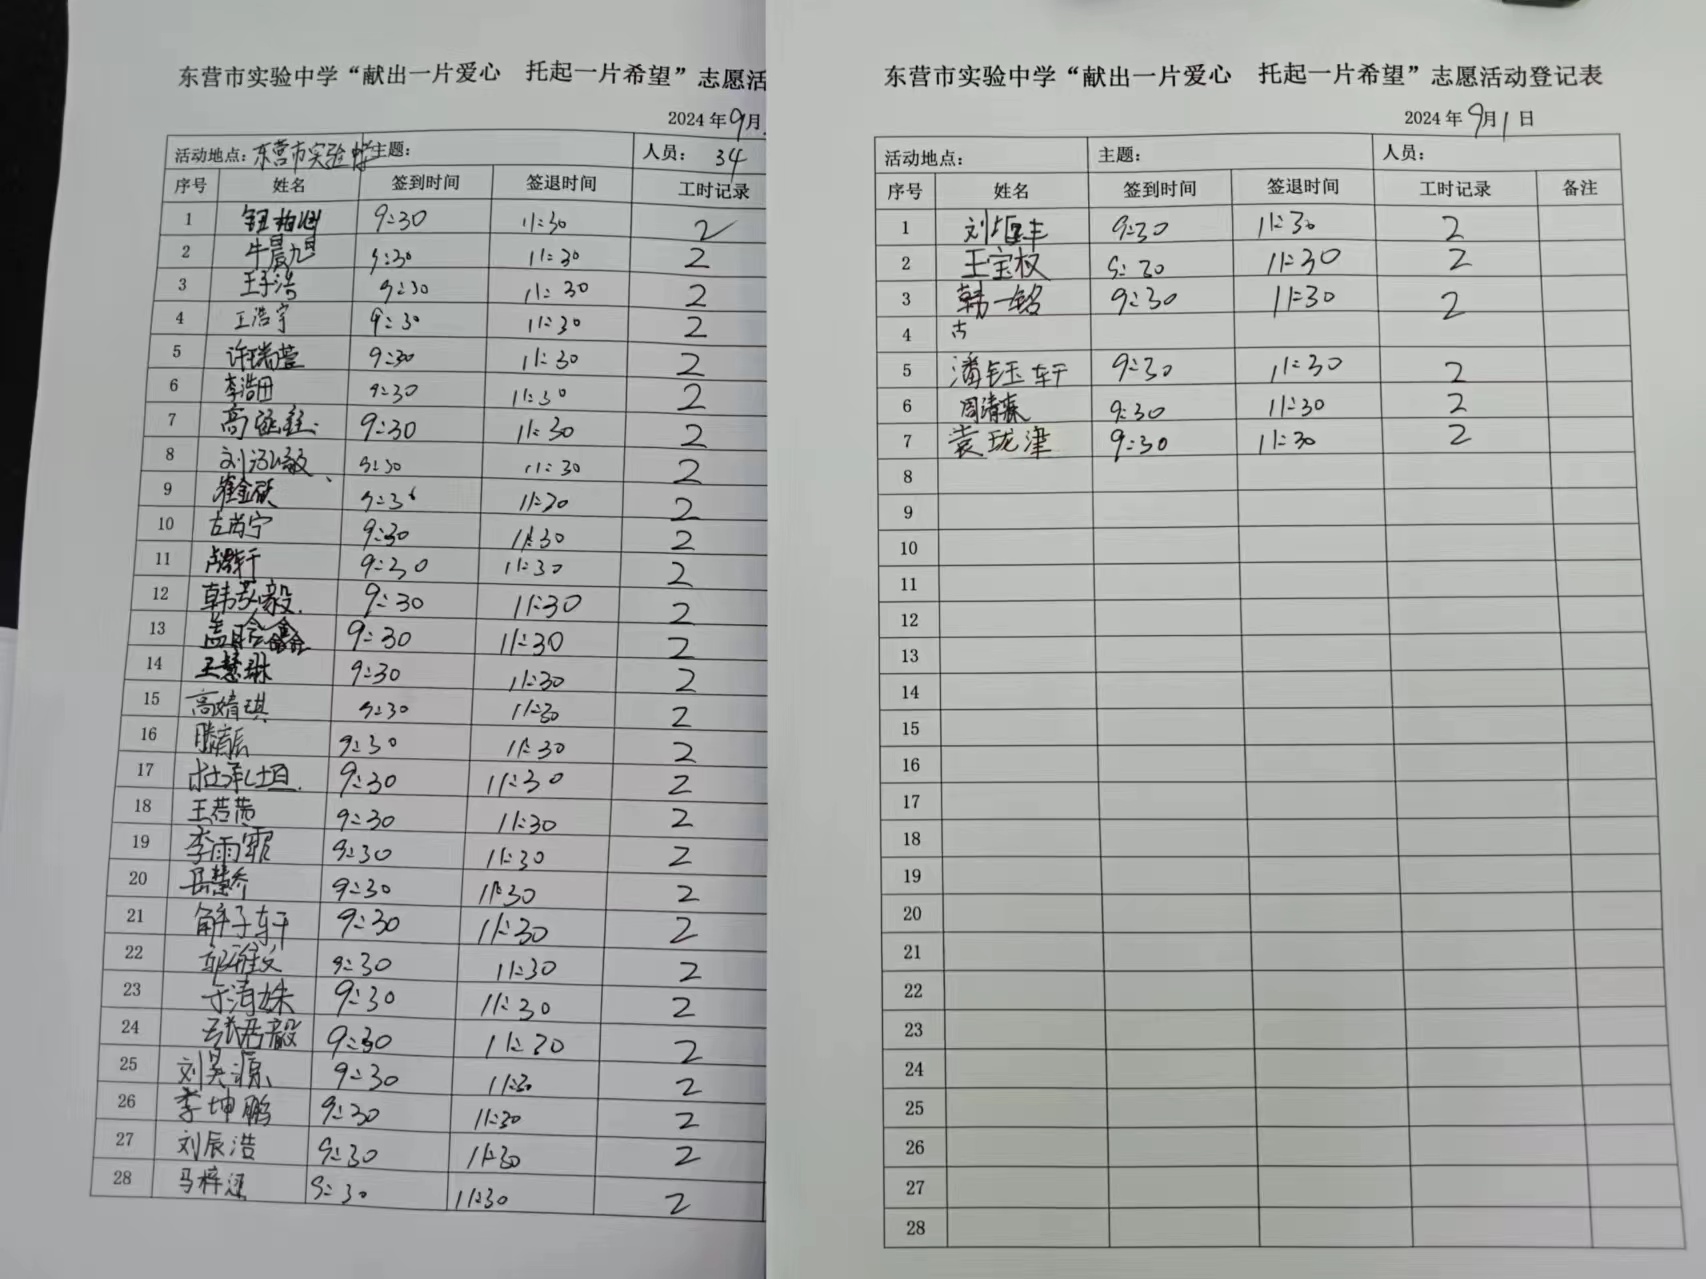 东营市实验中学“献出一片爱心 托起一片希望”志愿活
2024年9月
活动地点：东营市实验中学 主题： 人员：34
序号 姓名 签到时间 签退时间 工时记录
1 9:30 11:30 2
2 牛晨旭 9:30 11:30 2
3 王子浩 9:30 11:30 2
4 王浩宇 9:30 11:30 2
5 许瑞萱 9:30 11:30 2
6 李浩田 9:30 11:30 2
7 高 9:30 11:30 2
8 刘 9:30 11:30 2
9 崔金硕 9:30 11:30 2
10 左尚宁 9:30 11:30 2
11 9:30 11:30 2
12 韩 毅 9:30 11:30 2
13 盖 9:30 11:30 2
14 王慧琳 9:30 11:30 2
15 高婧琪 9:30 11:30 2
16 9:30 11:30 2
17 杜泽坦 9:30 11:30 2
18 王若茜 9:30 11:30 2
19 李雨霏 9:30 11:30 2
20 岳慧乔 9:30 11:30 2
21 解子轩 9:30 11:30 2
22 9:30 11:30 2
23 于清姝 9:30 11:30 2
24 9:30 11:30 2
25 刘昊源 9:30 11:30 2
26 李坤鹏 9:30 11:30 2
27 刘辰浩 9:30 11:30 2
28 马梓 9:30 11:30 2
东营市实验中学“献出一片爱心 托起一片希望”志愿活动登记表
2024年9月1日
活动地点： 主题： 人员：
序号 姓名 签到时间 签退时间 工时记录 备注
1 刘恒丰 9:30 11:30 2
2 王宝权 9:30 11:30 2
3 韩一铭 9:30 11:30 2
4 古
5 潘钰轩 9:30 11:30 2
6 周清森 9:30 11:30 2
7 袁珑津 9:30 11:30 2
8
9
10
11
12
13
14
15
16
17
18
19
20
21
22
23
24
25
26
27
28